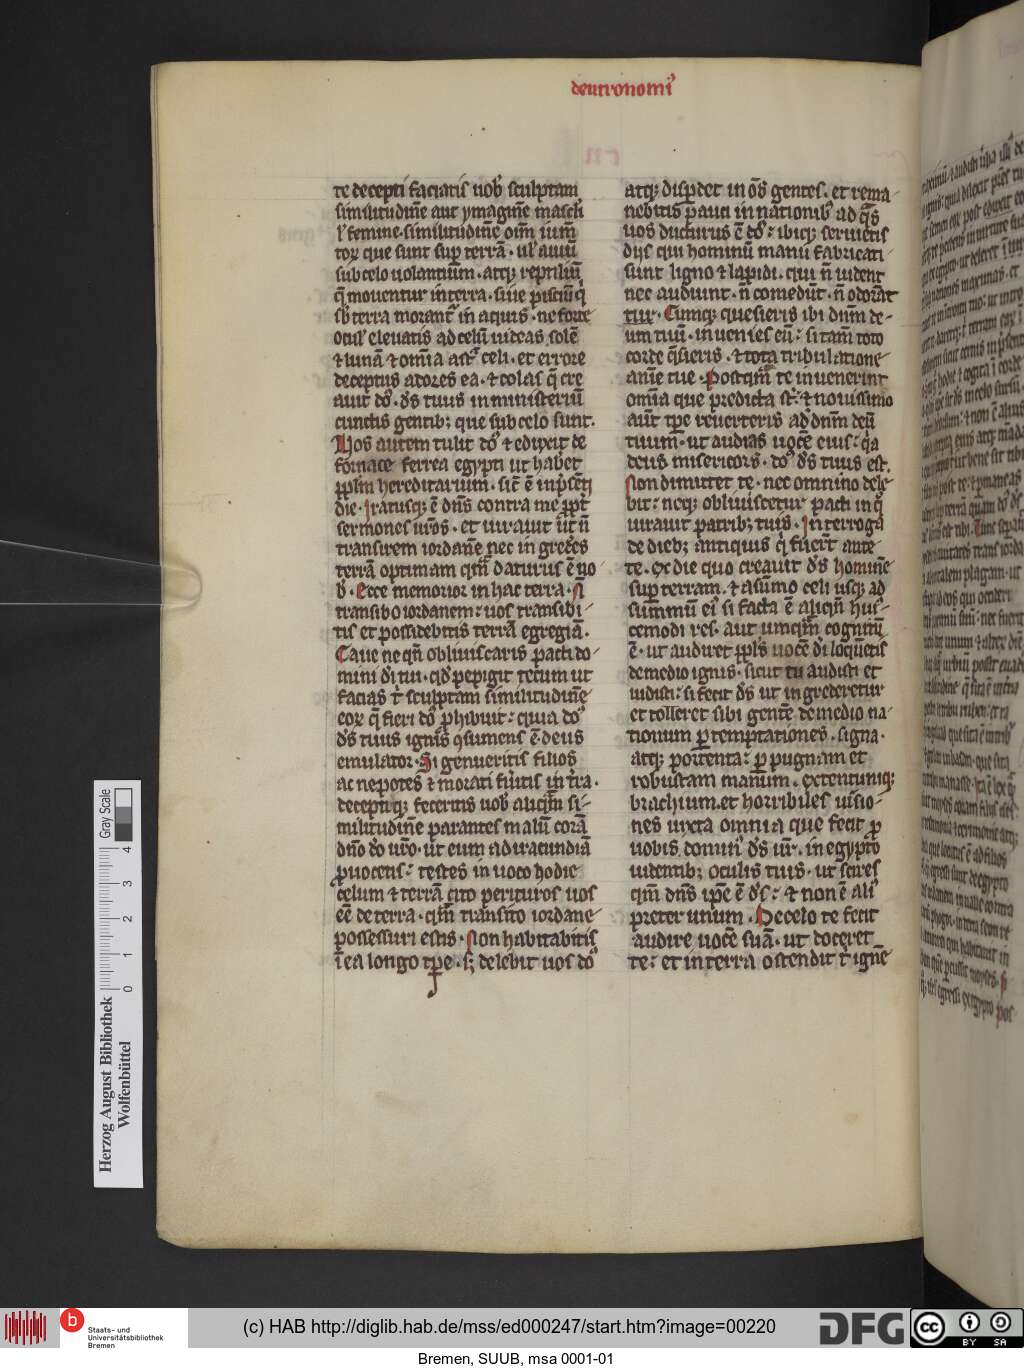 deutronomiꝰ
te decepti faciatis uob̄ sculptam
similitudinē aut ymaginē masc̄li
ł femine· similitudinē om̄ium
toꝝ que sunt suꝑ terrā· uł auiū
sub celo uolantium· atqꝫ reptiliū
q̄ mouentur in terra· siue pisciū q̇
sb̄ terra morant᷑ in aquis· ne forte
oculꝭ eleuatis ad celū uideas solē
⁊ lunā ⁊ om̄ia astᷓ celi· et errore
deceptus adores ea· ⁊ colas q̄ cre
auit dn̄s dꝰ tuus in ministeriū
cunctis gentibꝫ que sub celo sunt.
Uos autem tulit dn̄s ⁊ eduxit de
fornace ferrea egypti ut habēt
ꝓplm̄ hereditarium· sic̄ ē in p̄sēti
die· Iratusqꝫ ē dn̄s contra me ꝓpt̄
sermones ur̄os· et iurauit ut n̄
transirem iordanē nec in gred̄es
terrā optimam qm̄ daturus ē uo
b̄· Ecce memorior in hac terra· N̄
transibo iordanem: uos transibi-
tis et possidebitis terrā egregiā.
Caue ne qn̄ obliuiscaris pacti do-
mini dī tui· qd̄ pepigit tecum ut
facias t᷑ sculptam similitudinē
eoꝝ q̄ fieri dn̄s ꝓhibuit: quia dn̄s
dꝰ tuus ignis ꝯsumens ē· deus
emulator· Si genueritis filios
ac nepotes ⁊ morati fuītis in tr̄a·
deceptiqꝫ feceritis uob̄ aliqm̄ si-
militudinē parantes malū corā
dn̄o dō ur̄o· ut eum ad iracundiā
ꝓuocetis: testes in uoco hodie
celum ⁊ terrā cito perituros uos
eē de terra· qm̄ transito iordane
possessuri estis· Non habitabitis
ī ea longo tꝑe· sꝫ delebit uos dn̄s
atqꝫ disꝑdet in om̄s gentes· et rema-
nebitis pauci in nationibꝰ ad q̄s
uos ducturus ē dn̄s: ibiqꝫ seruietis
diis qui hominū manu fabricati
sunt ligno ⁊ lapidi· qui n̄ uident
nec audiunt· n̄ comedūt· n̄ odorāt
tur· Cumqꝫ quesieris ibi dn̄m de-
um tuū· inuenies eū: si tam̄ toto
corde q̄sieris· ⁊ tota tribulatione
anīe tue· Postqm̄ te inuenerint
om̄ia que predicta st̄: ⁊ nouissimo
aūt tꝑe reuerteris ad dn̄m deū
tuum· ut audias uocē eius: q̇a
deus misericors· dn̄s dꝰ tuus est.
Non dimittet te· nec omnino dele
bit: neqꝫ obliuiscetur pacti in qͦ
iurauit patribꝫ tuis· Interroga
de diebꝫ antiquis q̇ fuerūt ante
te· Ex die quo creauit dꝰ hominē
suꝑ terram· ⁊ a sūmo celi usqꝫ ad
summū eiꝰ si facta ē aliqn̄ huiꝰ-
cemodi res· aut umqm̄ cognitū
ē· ut audiret ꝓpls̄ uocē dī loquētis
de medio ignis· sicut tu audisti et
uidisti: si fecit dꝰ ut ingrederetur
et tolleret sibi gentē de medio na-
tionum ꝑ temptationes· signa·
atqꝫ portenta: ꝑ pugnam et
robustam manum· extentumqꝫ
brachium· et horribiles uisio-
nes iuxta omnia que fecit ꝓ
uobis dominꝰ dꝰ ur̄· in egypto
uidentibꝫ oculis tuis· ut scires
qm̄ dn̄s ip̄e ē dꝰ: ⁊ non ē aliꝰ
preter unum· De celo te fecit
audire uocē suā· ut doceret
te: et in terra ostendit t᷑ ignē
Herzog August Bibliothek
Wolfenbüttel
0 1 2 3 4
Gray Scale
b
Staats- und
Universitätsbibliothek
Bremen
(c) HAB http://diglib.hab.de/mss/ed000247/start.htm?image=00220
DFG
cc BY SA
Bremen, SUUB, msa 0001-01